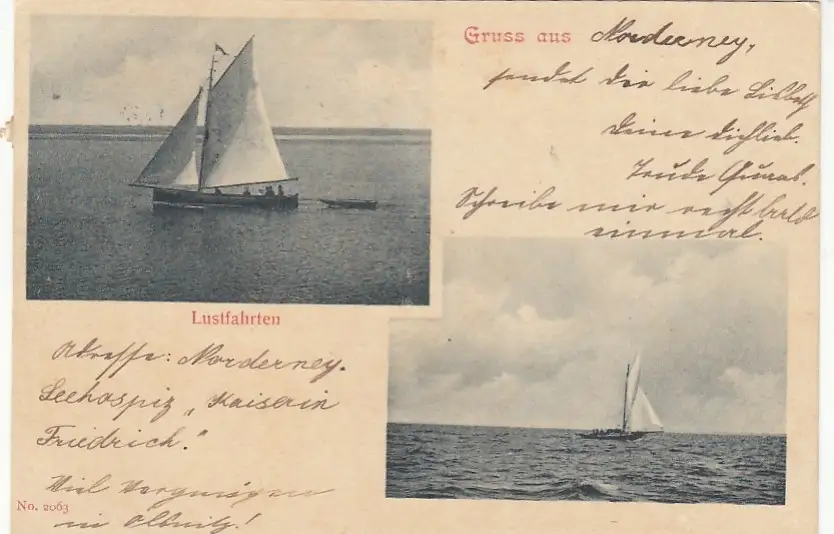 Gruss aus Norderney,
sendet dir liebe Lisbeth
Deine dichlieb.
Trude
Schreibe mir recht bald
einmal.
Lustfahrten
Adresse: Norderney.
Seehospiz „Kaiserin
Friedrich."
Viel Vergnügen
in
No. 2063